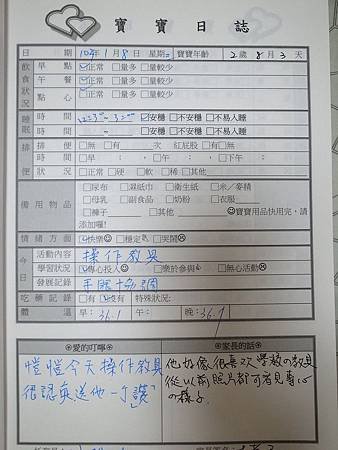 寶寶日誌
日期 10年1月8日 星期二 寶寶年齡 2歲8月3天
飲食狀況 早點 ☑正常 □量多 □量較少
午餐 ☑正常 □量多 □量較少
點心 ☑正常 □量多 □量較少
睡眠 時間 12:30~3:00 ☑安穩 □不安穩 □不易入睡
時間 ~ □安穩 □不安穩 □不易入睡
排便 排便 □無 □有 次 紅屁股 □有 □無
時間 □早: , □午: , □下午:
狀況 □正常 □硬 □軟 □稀 □其他
備用物品 □尿布 □濕紙巾 □衛生紙 □米/麥精
□母乳 □副食品 □奶粉 □衣服
□褲子 □其他 ☺寶寶用品快用完,請
添加喔!
情緒方面 ☑快樂☺ □穩定 □哭鬧
今日 活動內容 操作教具
學習狀況 ☑專心投入☺ □樂於參與 □無心活動
發展記錄 手眼協調
吃藥記錄 □有 ☑沒有 特殊狀況:
體溫 早:36.1 午: 晚:36.7
愛的叮嚀 家長的話
愷愷今天操作教具
很認真送他一個"讚"
他好像很喜歡學校の教具
從以前照片都可看見專心
の樣子